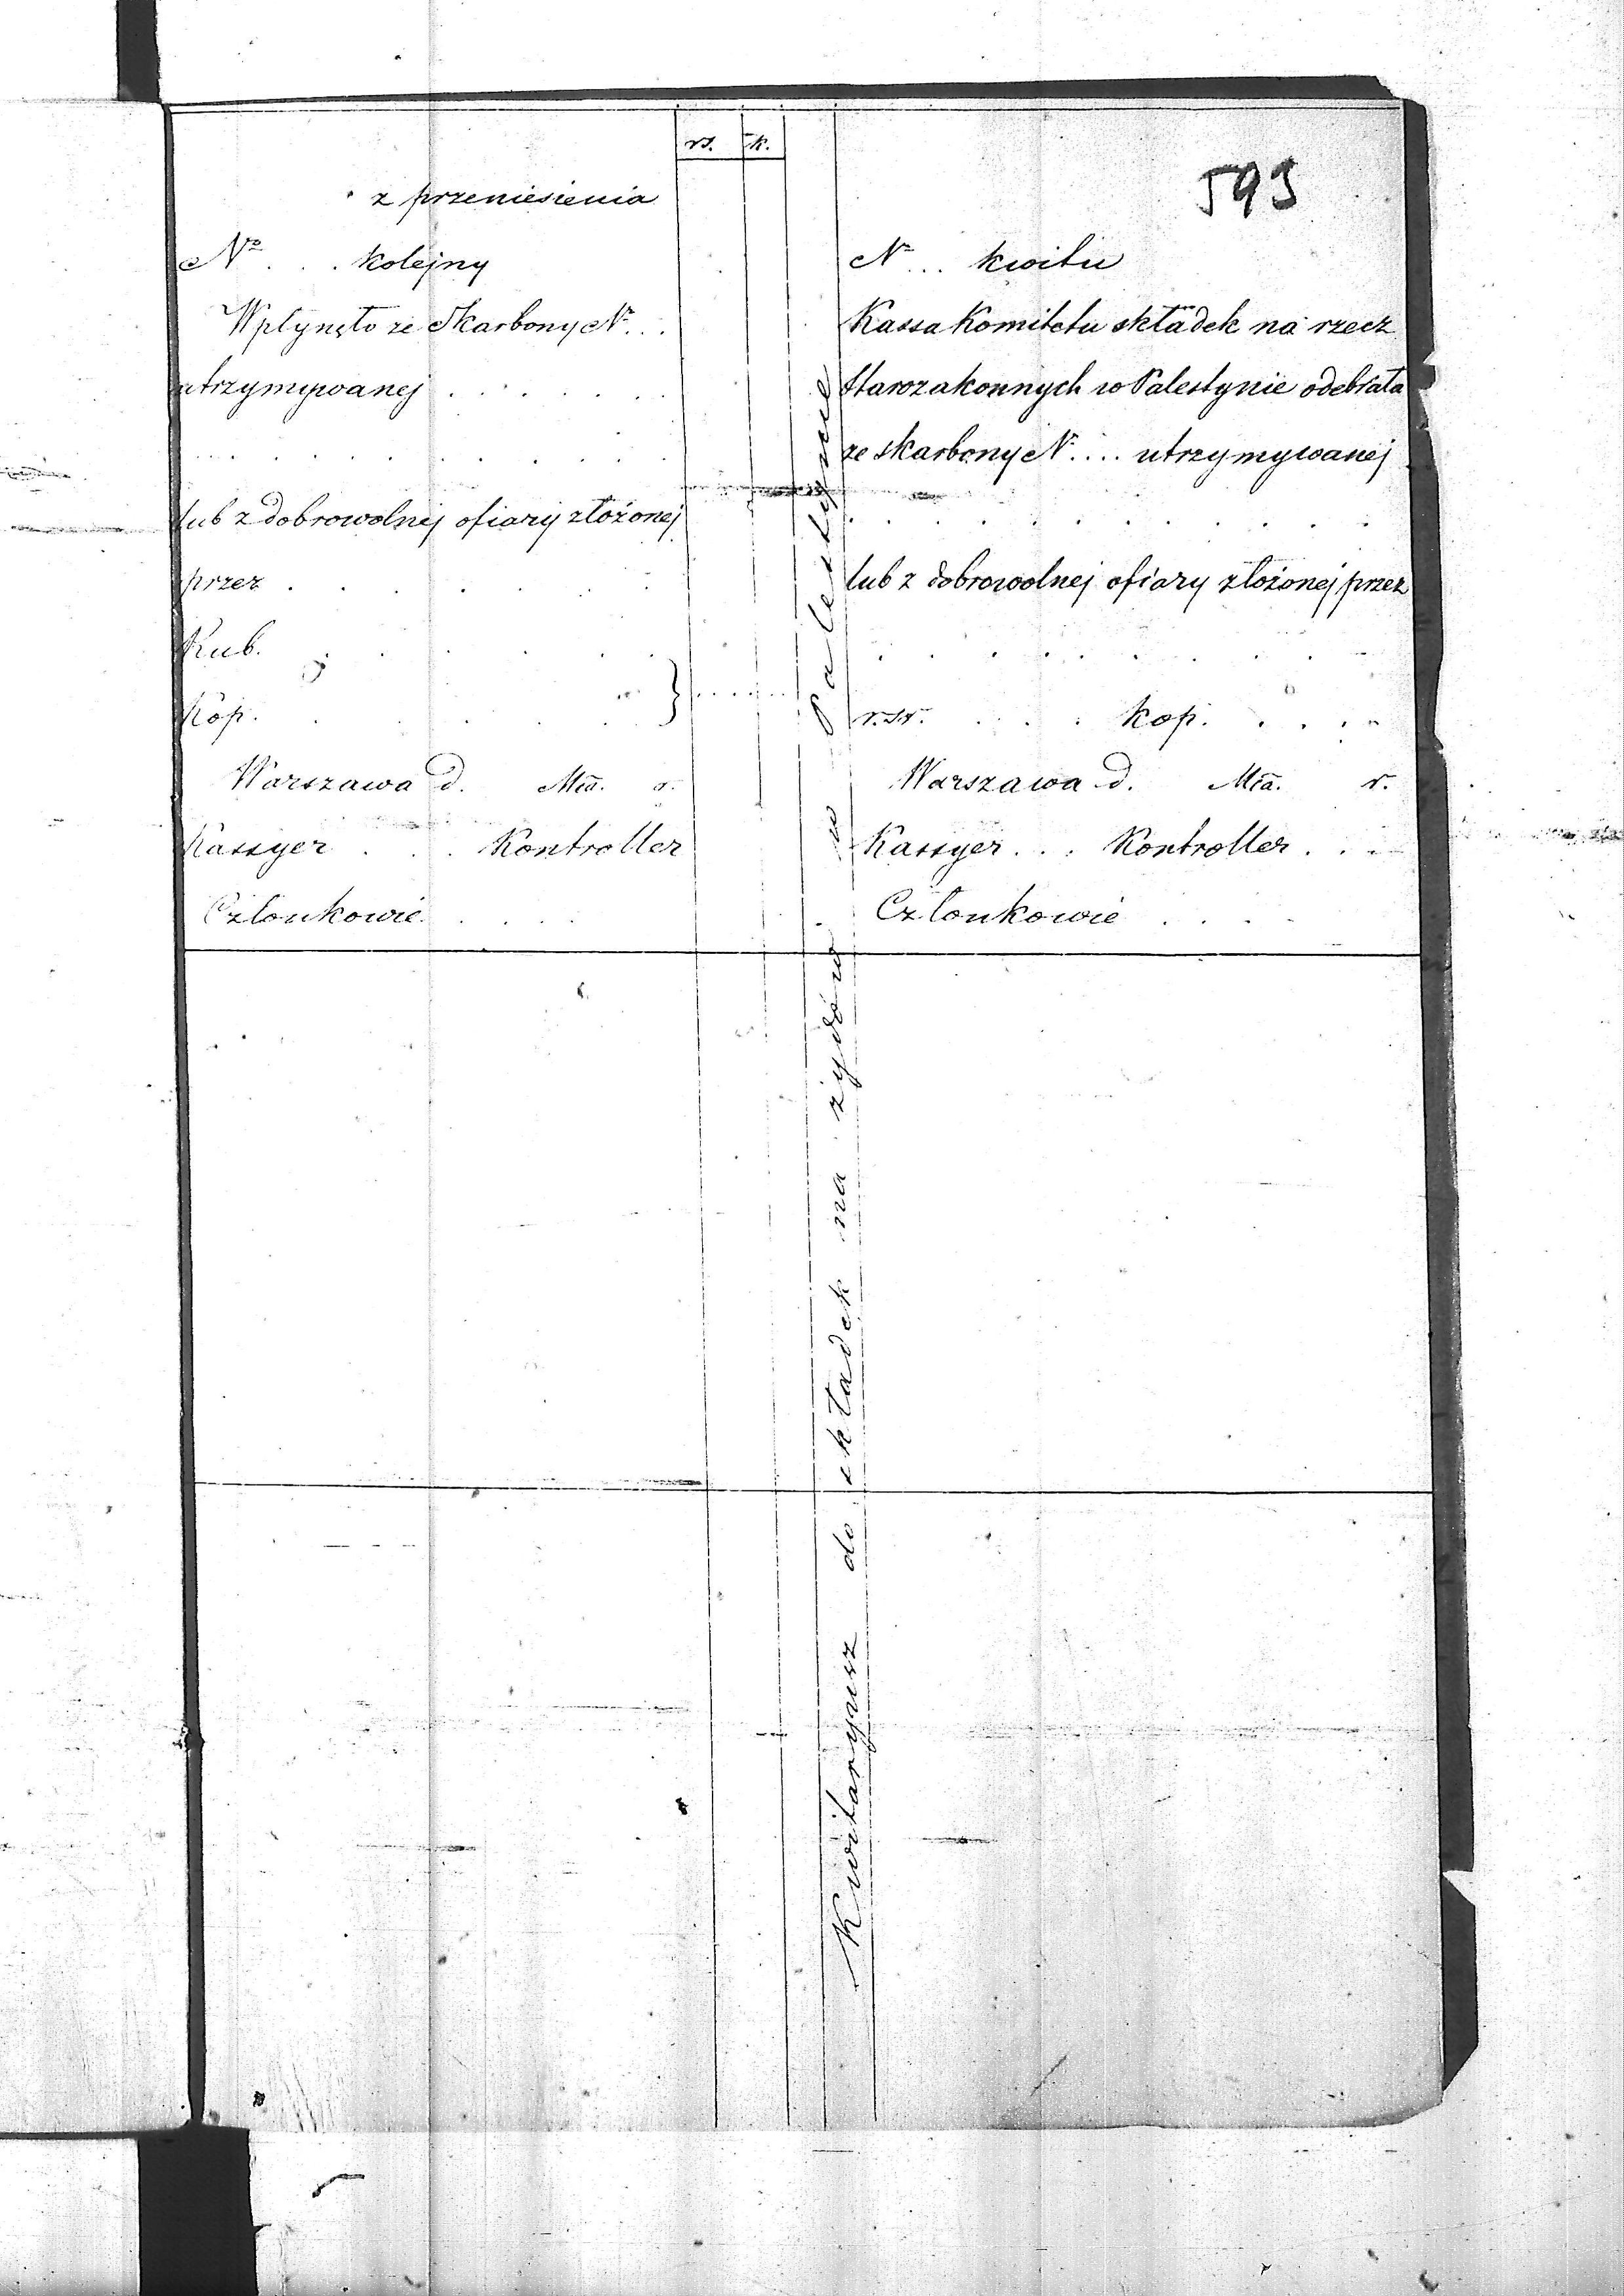 rs. k.
593
z przeniesienia
No . . . kolejny
Wpłynęło ze Skarbony No . . .
utrzymywanej . . . . . . .
. . . . . . . . . .
lub z dobrowolnej ofiary złożonej
przez . . . . . . .
Rub. . . . . . . .
Kop. . . . . . . . } . . . . . .
Warszawa d. Mca. r.
Kassyer . . . Kontroller
Członkowie . . . .
Kwitaryusz do składek na żydów w Palestynie
No . . . kwitu
Kassa Komitetu składek na rzecz
Starozakonnych w Palestynie odebrała
ze skarbony No . . . . utrzymywanej
. . . . . . . . . . .
lub z dobrowolnej ofiary złożonej przez
. . . . . . . . . .
r.sr. . . . . kop. . . . .
Warszawa d. Mca. r.
Kassyer . . . Kontroller . . .
Członkowie . . . .